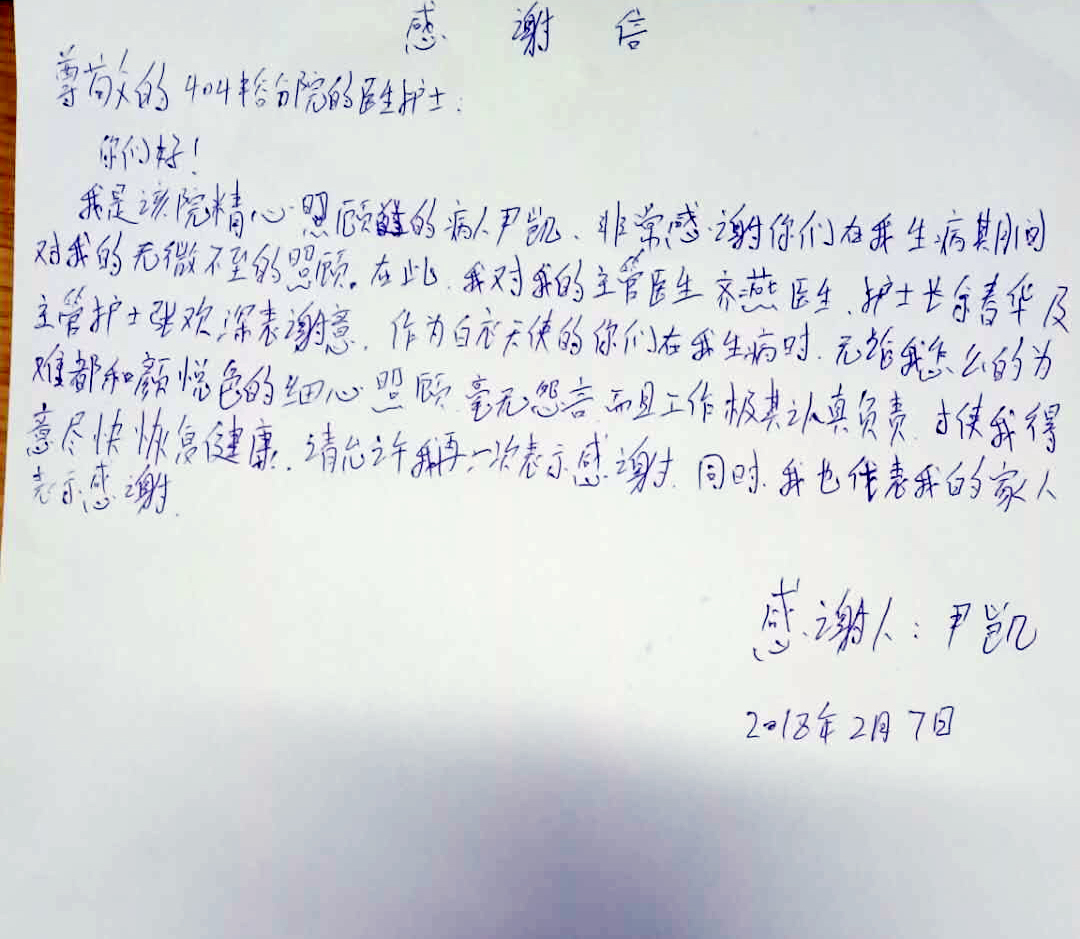 感谢信
尊敬的404医分院的医生护士：
你们好！
我是该院精心照顾的病人尹凯、非常感谢你们在我生病其月间
对我的无微不至的照顾。在此、我对我的主管医生齐燕医生、护士长余春华及
主管护士张欢深表谢意、作为白衣天使的你们在我生病时、无论我怎么的为
难都和颜悦色的细心照顾、毫无怨言、而且工作极其认真负责、才使我得
意尽快恢复健康、请允许我再一次表示感谢、同时、我也代表我的家人
表示感谢、
感谢人：尹凯
2018年2月7日